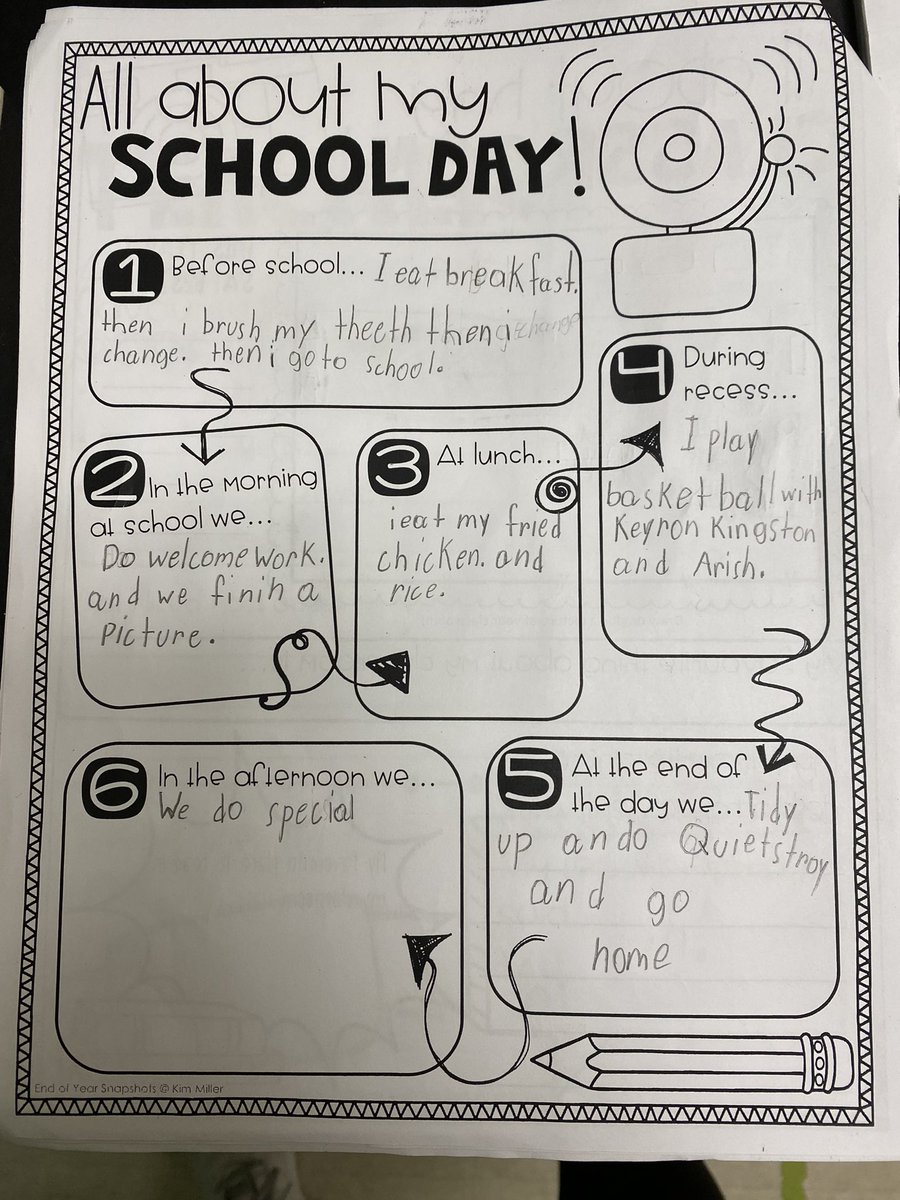 All about my
SCHOOL DAY!
1 Before school... I eat breakfast.
then i brush my theeth then i change
change. then i go to school.
2 In the Morning
at school we...
Do welcome work.
and we finih a
picture.
3 At lunch...
i eat my fried
chicken. and
rice.
4 During
recess...
I play
basketball with
Keyron Kingston
and Arish.
5 At the end of
the day we... Tidy
up an do Quietstroy
and go
home
6 In the afternoon we...
We do special
End of Year Snapshots © Kim Miller